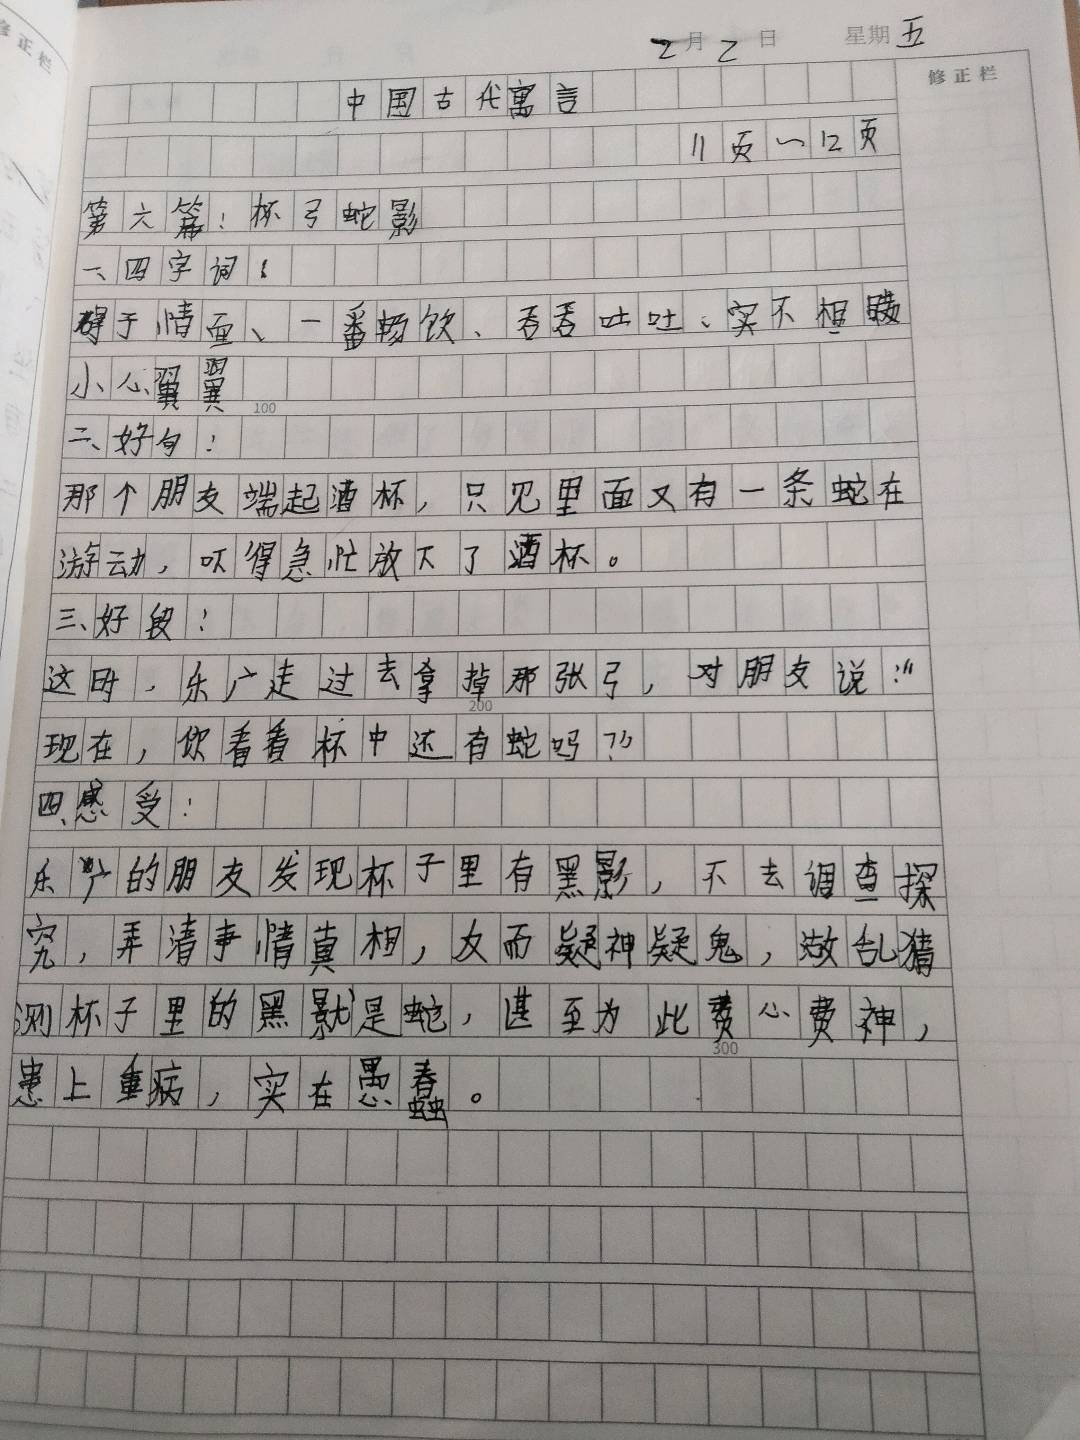 修正栏
2月2日 星期五
修正栏
中国古代寓言
11页~12页
第六篇：杯弓蛇影
一、四字词：
碍于情面、一番畅饮、吞吞吐吐、实不相瞒
小心翼翼
100
二、好句：
那个朋友端起酒杯，只见里面又有一条蛇在
游动，吓得急忙放下了酒杯。
三、好段：
这时，乐广走过去拿掉那张弓，对朋友说：“
200
现在，你看看杯中还有蛇吗？”
四、感受：
乐广的朋友发现杯子里有黑影，不去调查探
究，弄清事情真相，反而疑神疑鬼，胡乱猜
测杯子里的黑影是蛇，甚至为此费心费神，
300
患上重病，实在愚蠢。